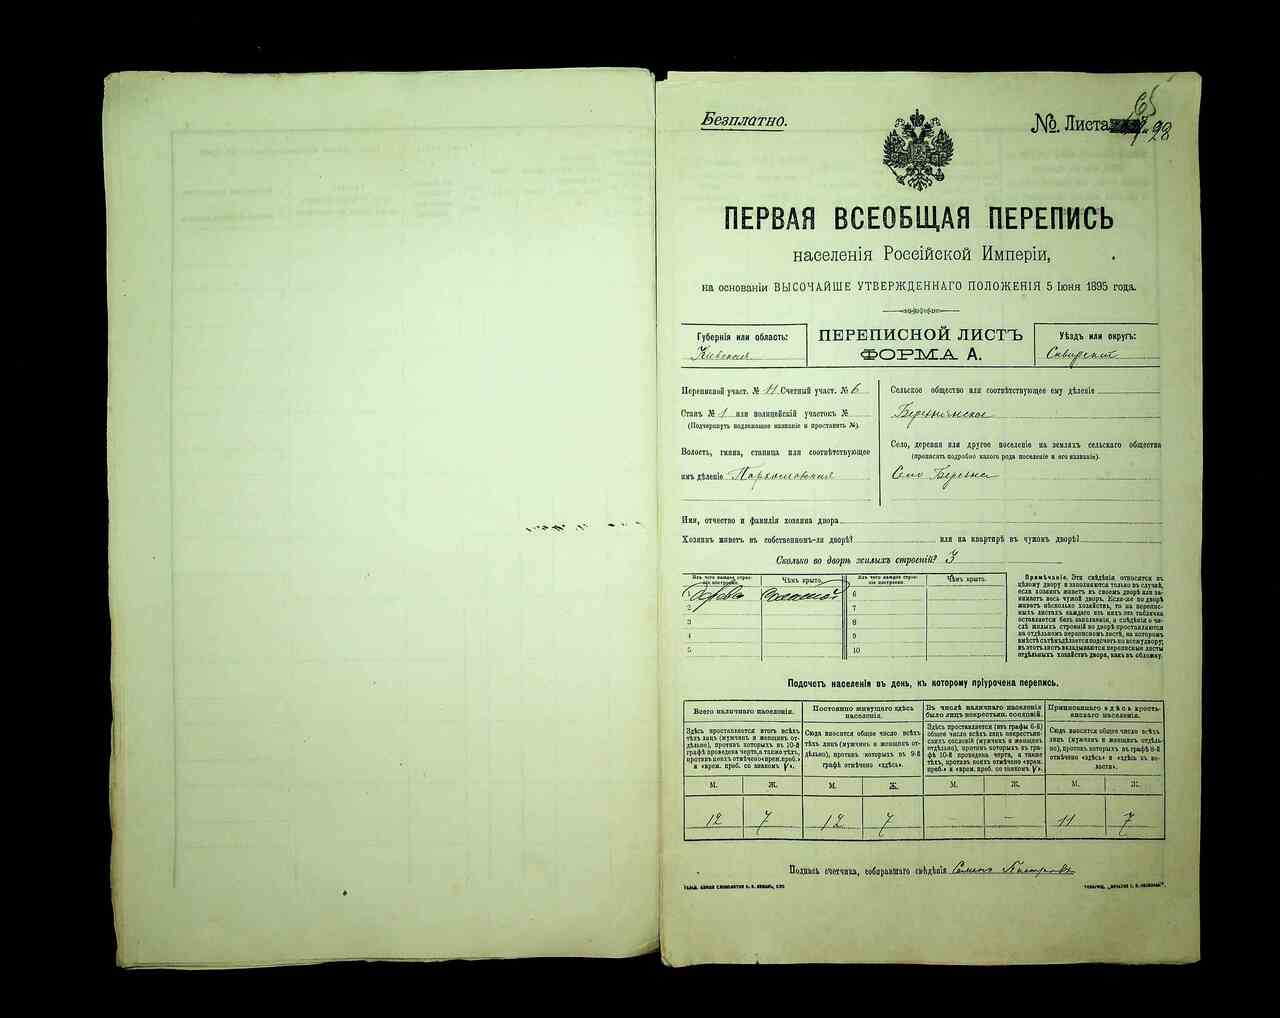 Безплатно.
№. Листа 65
98
ПЕРВАЯ ВСЕОБЩАЯ ПЕРЕПИСЬ
населенія Россійской Имперіи,
на основаніи ВЫСОЧАЙШЕ УТВЕРЖДЕННАГО ПОЛОЖЕНІЯ 5 Іюня 1895 года.
Губернія или область:
Кіевская
ПЕРЕПИСНОЙ ЛИСТЪ
ФОРМА А.
Уѣздъ или округъ:
Сквирскій
Переписной участ. № 11 Счетный участ. № 6
Станъ № 1 или полицейскій участокъ №
(Подчеркнуть подлежащее названіе и проставить №).
Волость, гмина, станица или соотвѣтствующее
имъ дѣленіе
Сельское общество или соотвѣтствующее ему дѣленіе
Березнянское
Село, деревня или другое поселеніе на земляхъ сельскаго общества
(прописать подробно какого рода поселеніе и его названіе).
Село Березна
Имя, отчество и фамилія хозяина двора
Хозяинъ живетъ въ собственномъ-ли дворѣ? или на квартирѣ въ чужомъ дворѣ?
Сколько во дворѣ жилыхъ строеній? 3
Изъ чего каждое строеніе построено.
Чѣмъ крыто.
Изъ чего каждое строеніе построено.
Чѣмъ крыто.
1 дерева соломой 6
2 7
3 8
4 9
5 10
Примѣчаніе. Эти свѣдѣнія относятся къ
цѣлому двору и заполняются только въ случаѣ,
если хозяинъ живетъ въ своемъ дворѣ или за-
нимаетъ весь чужой дворъ. Если-же во дворѣ
живетъ нѣсколько хозяйствъ, то на перепис-
ныхъ листахъ каждаго изъ нихъ эта табличка
оставляется безъ заполненія, а свѣдѣнія о чи-
слѣ жилыхъ строеній во дворѣ проставляются
на отдѣльномъ переписномъ листѣ, на которомъ
вмѣстѣ съ тѣмъ дѣлается подсчетъ по всему двору;
въ этотъ листъ вкладываются переписные листы
отдѣльныхъ хозяйствъ двора, какъ въ обложку.
Подсчетъ населенія въ день, къ которому пріурочена перепись.
Всего наличнаго населенія.
Здѣсь проставляется итогъ всѣхъ
тѣхъ лицъ (мужчинъ и женщинъ от-
дѣльно), противъ которыхъ въ 10-й
графѣ проведена черта, а также тѣхъ,
противъ коихъ отмѣчено «врем. преб.»
и «врем. преб. со знакомъ V».
Постоянно живущаго здѣсь
населенія.
Сюда вносится общее число всѣхъ
тѣхъ лицъ (мужчинъ и женщинъ от-
дѣльно), противъ которыхъ въ 9-й
графѣ отмѣчено «здѣсь».
Въ числѣ наличнаго населенія
было лицъ некрестьян. сословій.
Здѣсь проставляется (изъ графы 6-й)
общее число всѣхъ лицъ некрестьян-
скихъ сословій (мужчинъ и женщинъ
отдѣльно), противъ которыхъ въ гра-
фѣ 10-й проведена черта, а также
тѣхъ, противъ коихъ отмѣчено «врем.
преб.» и «врем. преб. со знакомъ V».
Приписаннаго здѣсь кресть-
янскаго населенія.
Сюда вносится общее число всѣхъ
лицъ (мужчинъ и женщинъ отдѣль-
но), противъ которыхъ въ графѣ 8-й
отмѣчено «здѣсь» и «здѣсь въ во-
лости».
М. Ж. М. Ж. М. Ж. М. Ж.
12 7 12 7 — — 11 7
Подпись счетчика, собиравшаго свѣдѣнія Семенъ